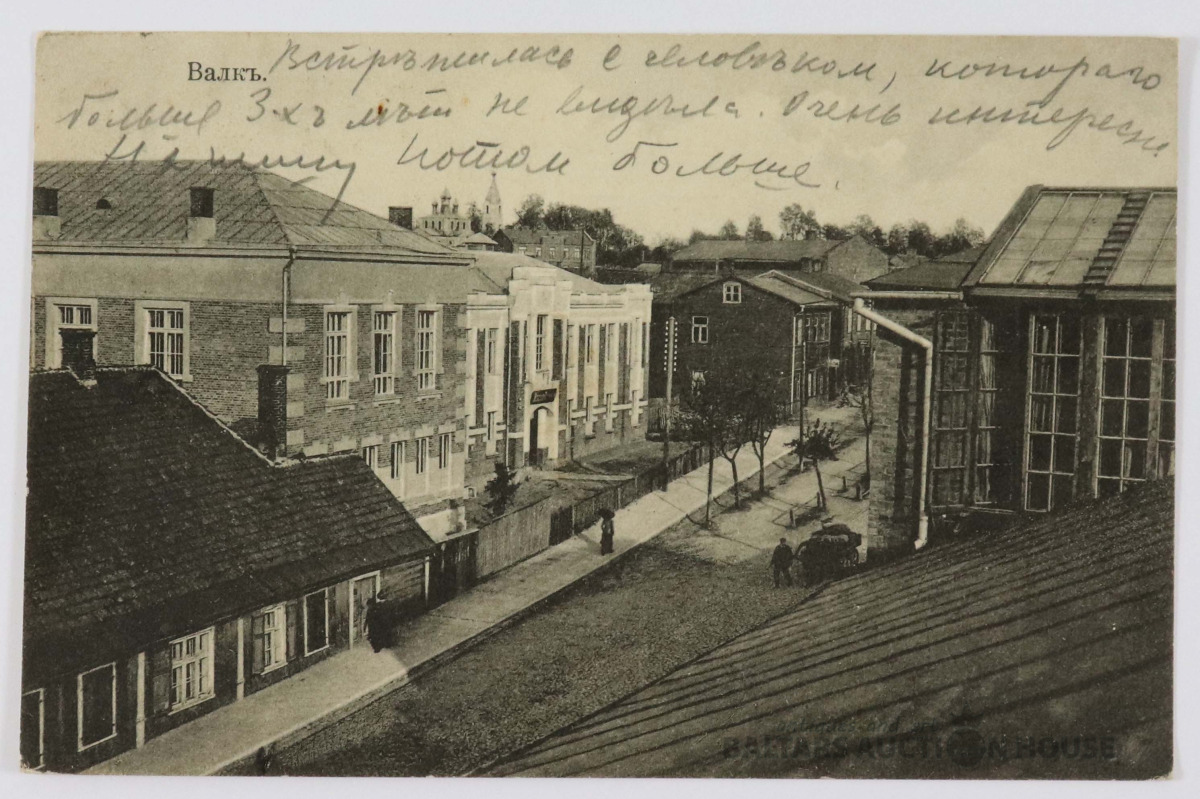 Валкъ.
Встрѣтилась с человѣкомъ, котораго
больше 3-хъ лѣтъ не видѣла. Очень интересно
Напишу потом больше.
BALTARS AUCTION HOUSE